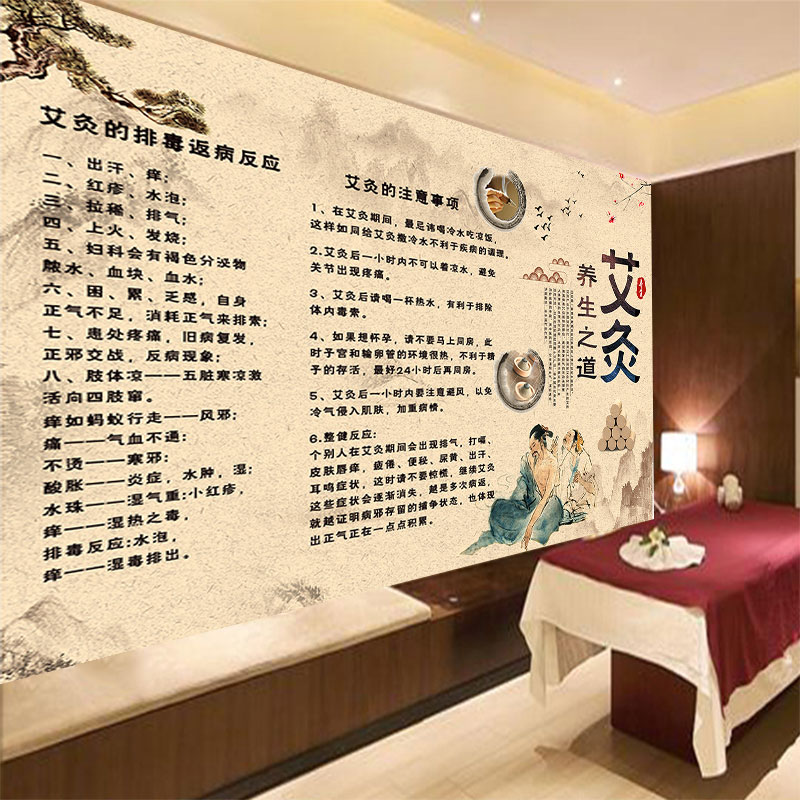 艾灸的排毒返病反应
一、出汗、痒;
二、红疹、水泡;
三、拉稀、排气;
四、上火、发烧;
五、妇科会有褐色分泌物
脓水、血块、血水;
六、困、累、乏感，自身
正气不足，消耗正气来排素;
七、患处疼痛，旧病复发，
正邪交战，反病现象;
八、肢体凉——五脏寒凉激
活向四肢窜。
痒如蚂蚁行走——风邪;
痛——气血不通;
不烫——寒邪;
酸胀——炎症，水肿，湿;
水珠——湿气重:小红疹，
痒——湿热之毒，
排毒反应:水泡，
痒——湿毒排出。
艾灸的注意事项
1、在艾灸期间，最忌讳喝冷水吃凉饭，
这样如同给艾灸撒冷水不利于疾病的调理。
2.艾灸后一小时内不可以着凉水，避免
关节出现疼痛。
3、艾灸后请喝一杯热水，有利于排除
体内毒素。
4、如果想怀孕，请不要马上同房，此
时子宫和输卵管的环境很热，不利于精
子的存活，最好24小时后再同房。
5、艾灸后一小时内要注意避风，以免
冷气侵入肌肤，加重病情。
6.整健反应:
个别人在艾灸期间会出现排气，打嗝、
皮肤唇痒，疲倦、便秘、尿黄、出汗、
耳鸣症状，这时请不要惊慌，继续艾灸
这些症状会逐渐消失，越是多次病返，
就越证明病邪存留的捕争状态，也体现
出正气正在一点点积累。
艾灸
养生之道